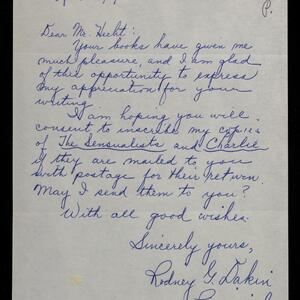 P.
Dear Mr. Hecht:
Your books have given me
much pleasure, and I am glad
of this opportunity to express
my appreciation for your
writing.
I am hoping you will
consent to inscribe my copies
of The Sensualists and Charlie
if they are mailed to you
with postage for their return.
May I send them to you?
With all good wishes.
Sincerely yours,
Rodney G. Dakin